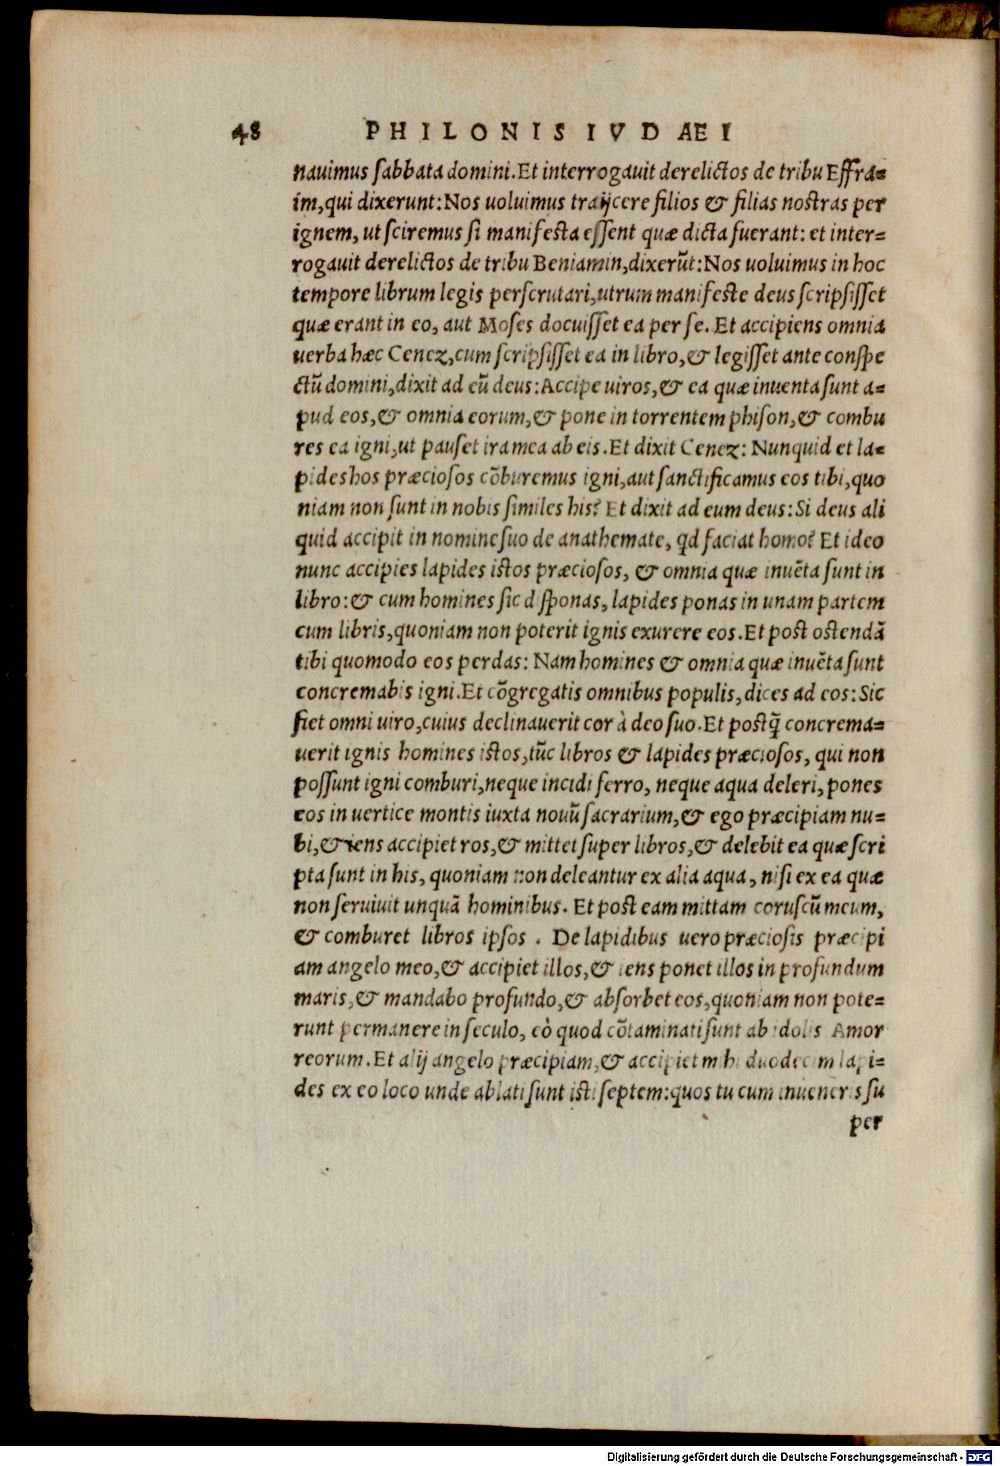 48 PHILONIS IVDAEI
nauimus sabbata domini. Et interrogauit derelictos de tribu Effra=
im, qui dixerunt: Nos uoluimus traijcere filios & filias nostras per
ignem, ut sciremus si manifesta essent quæ dicta fuerant: et inter=
rogauit derelictos de tribu Beniamin, dixerũt: Nos uoluimus in hoc
tempore librum legis perscrutari, utrum manifeste deus scripsisset
quæ erant in eo, aut Moses docuisset ea per se. Et accipiens omnia
uerba hæc Cenez, cum scripsisset ea in libro, & legisset ante conspe
ctũ domini, dixit ad eũ deus: Accipe uiros, & ea quæ inuenta sunt a=
pud eos, & omnia eorum, & pone in torrentem phison, & combu
res ea igni, ut pauset ira mea ab eis. Et dixit Cenez: Nunquid et la=
pides hos præciosos cõburemus igni, aut sanctificamus eos tibi, quo
niam non sunt in nobis similes his? Et dixit ad eum deus: Si deus ali
quid accipit in nomine suo de anathemate, qd faciat homo? Et ideo
nunc accipies lapides istos præciosos, & omnia quæ inuẽta sunt in
libro: & cum homines sic d sponas, lapides ponas in unam partem
cum libris, quoniam non poterit ignis exurere eos. Et post ostendã
tibi quomodo eos perdas: Nam homines & omnia quæ inuẽta sunt
concremabis igni. Et cõgregatis omnibus populis, dices ad eos: Sic
fiet omni uiro, cuius declinauerit cor à deo suo. Et postq̃ concrema=
uerit ignis homines istos, tũc libros & lapides præciosos, qui non
possunt igni comburi, neque incidi ferro, neque aqua deleri, pones
eos in uertice montis iuxta nouũ sacrarium, & ego præcipiam nu=
bi, & iens accipiet ros, & mittet super libros, & delebit ea quæ scri
pta sunt in his, quoniam non deleantur ex alia aqua, nisi ex ea quæ
non seruiuit unquã hominibus. Et post eam mittam coruscũ meum,
& comburet libros ipsos. De lapidibus uero præciosis præcipi
am angelo meo, & accipiet illos, & iens ponet illos in profundum
maris, & mandabo profundo, & absorbet eos, quoniam non pote=
runt permanere in seculo, eò quod cõtaminati sunt ab idolis Amor
reorum. Et alij angelo præcipiam, & accipiet mihi duodecim lapi=
des ex eo loco unde ablati sunt isti septem: quos tu cum inueneris su
per
Digitalisierung gefördert durch die Deutsche Forschungsgemeinschaft - DFG